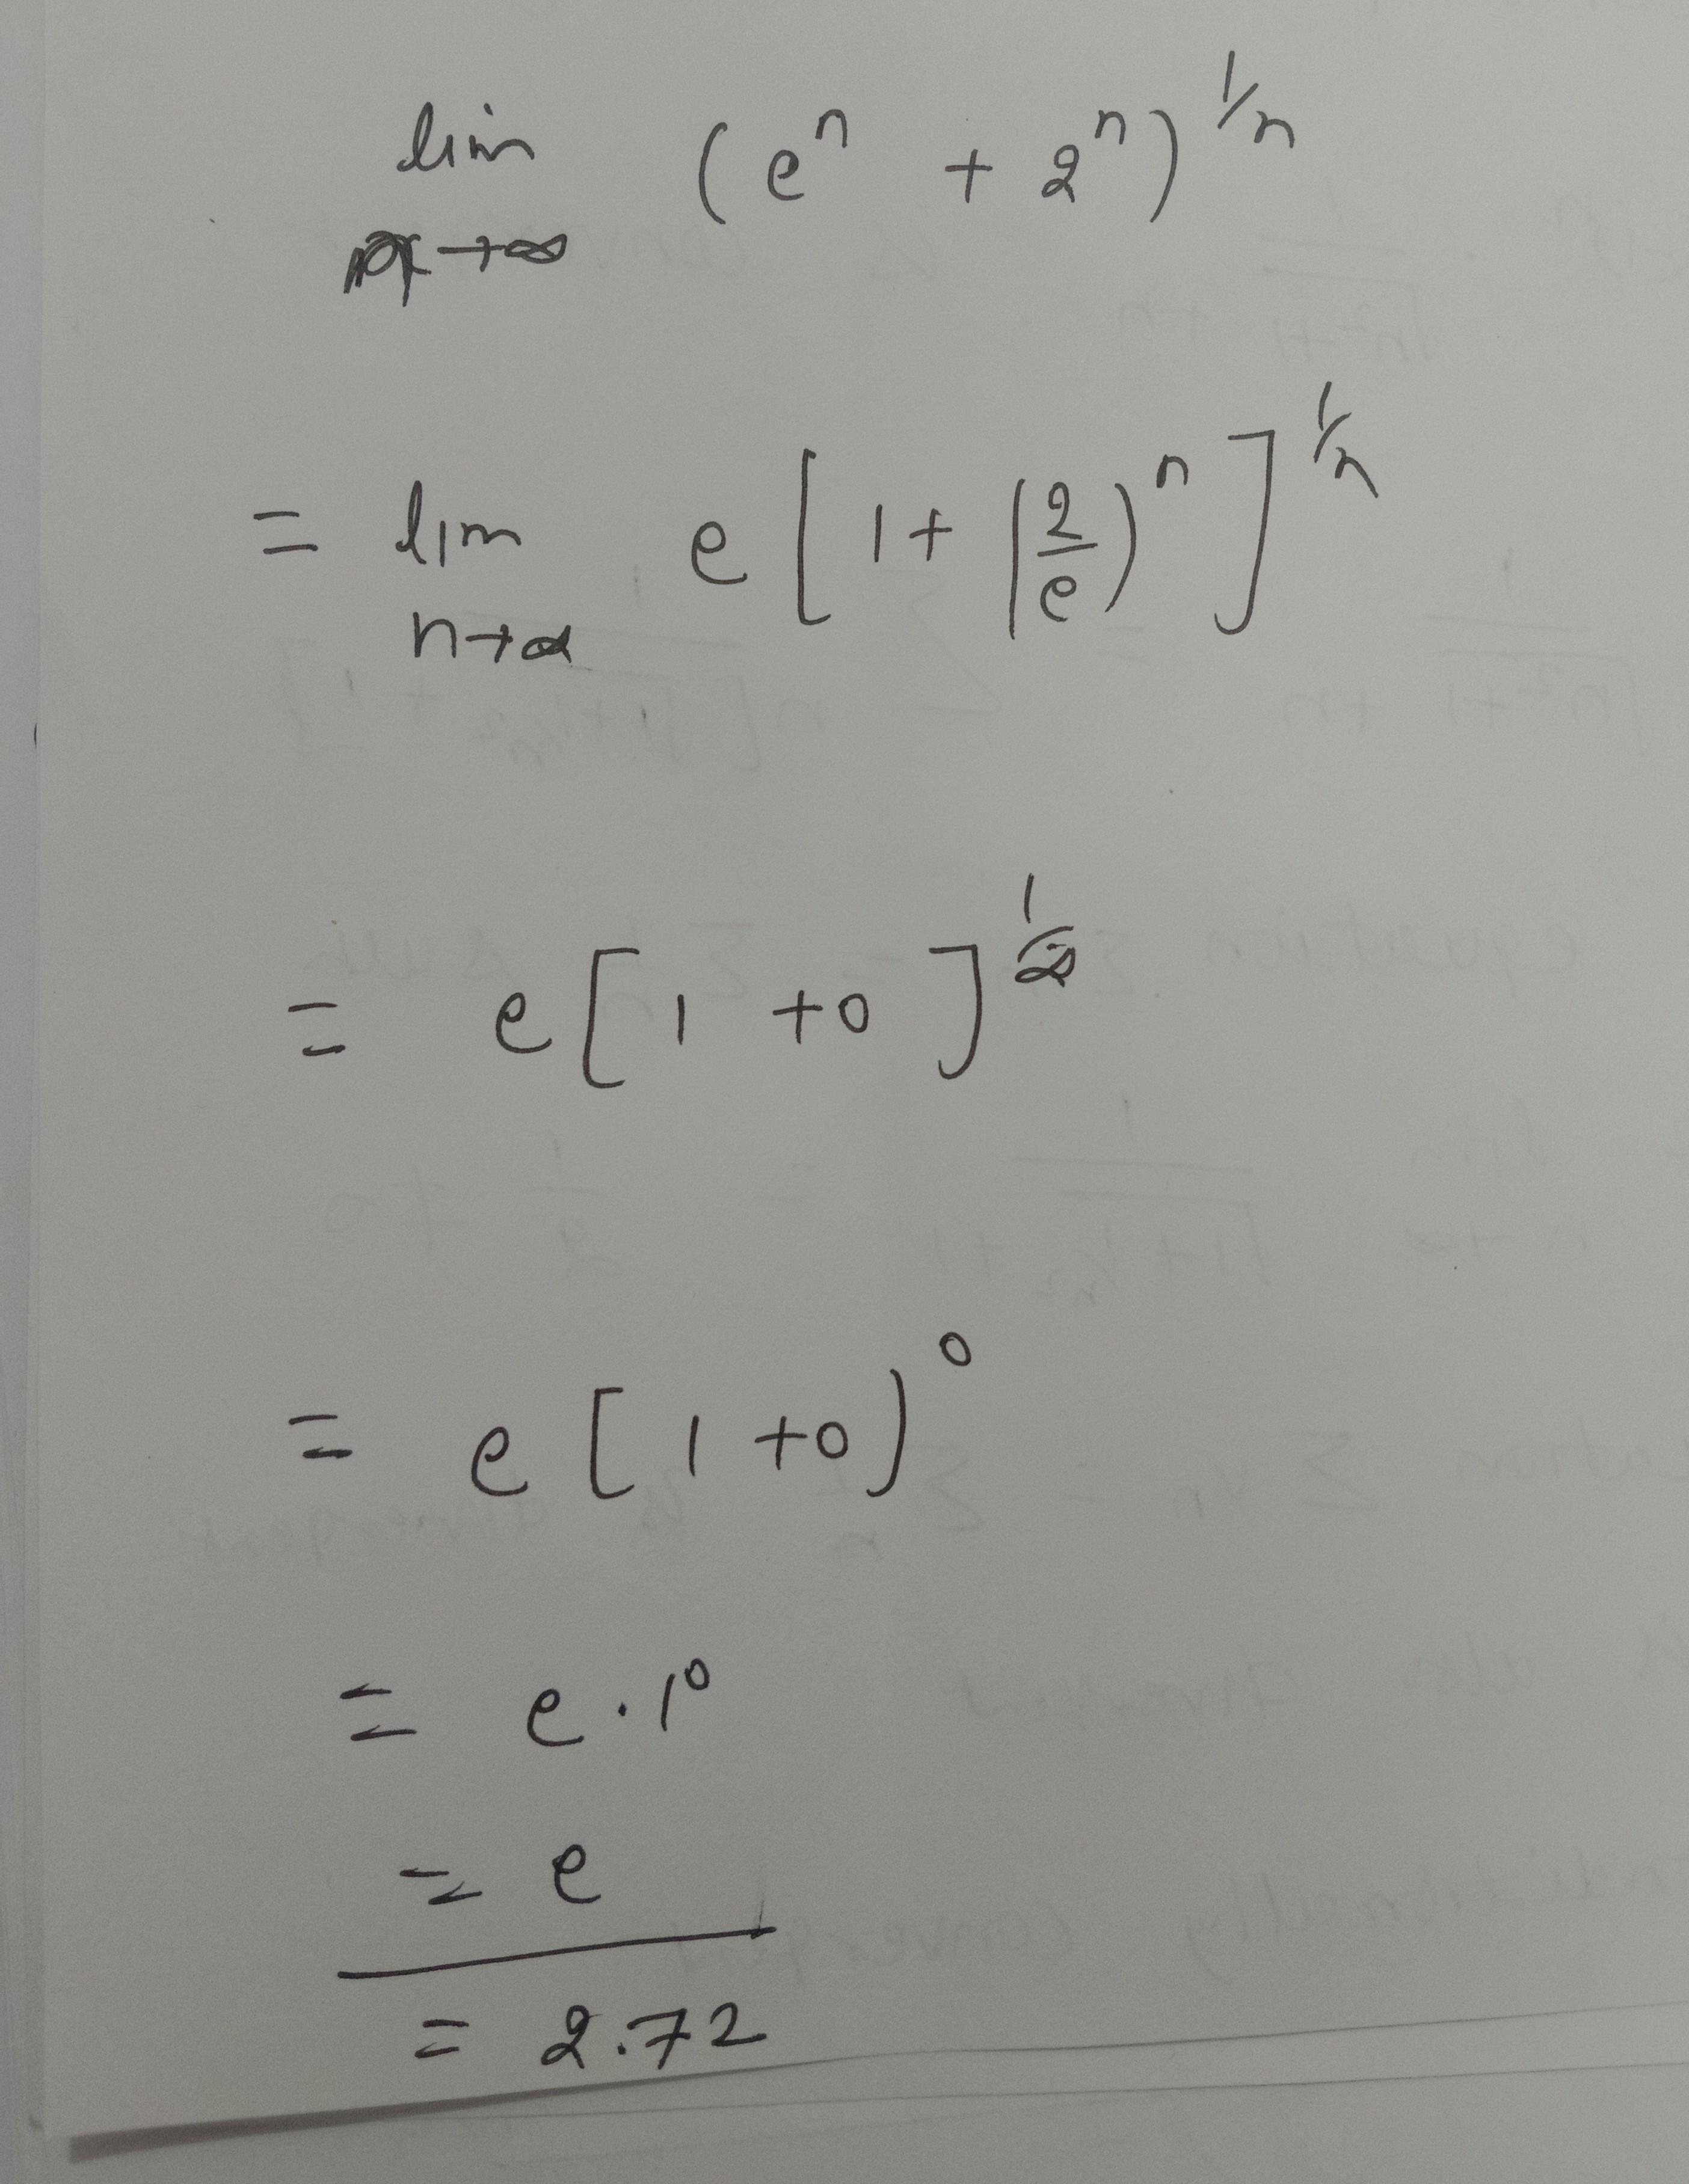 lim (eⁿ + 2ⁿ)^1/n
n→∞
= lim e[1+(2/e)ⁿ]^1/n
n→∞
= e[1+0]^1/∞
= e[1+0)⁰
= e.1⁰
= e
= 2.72